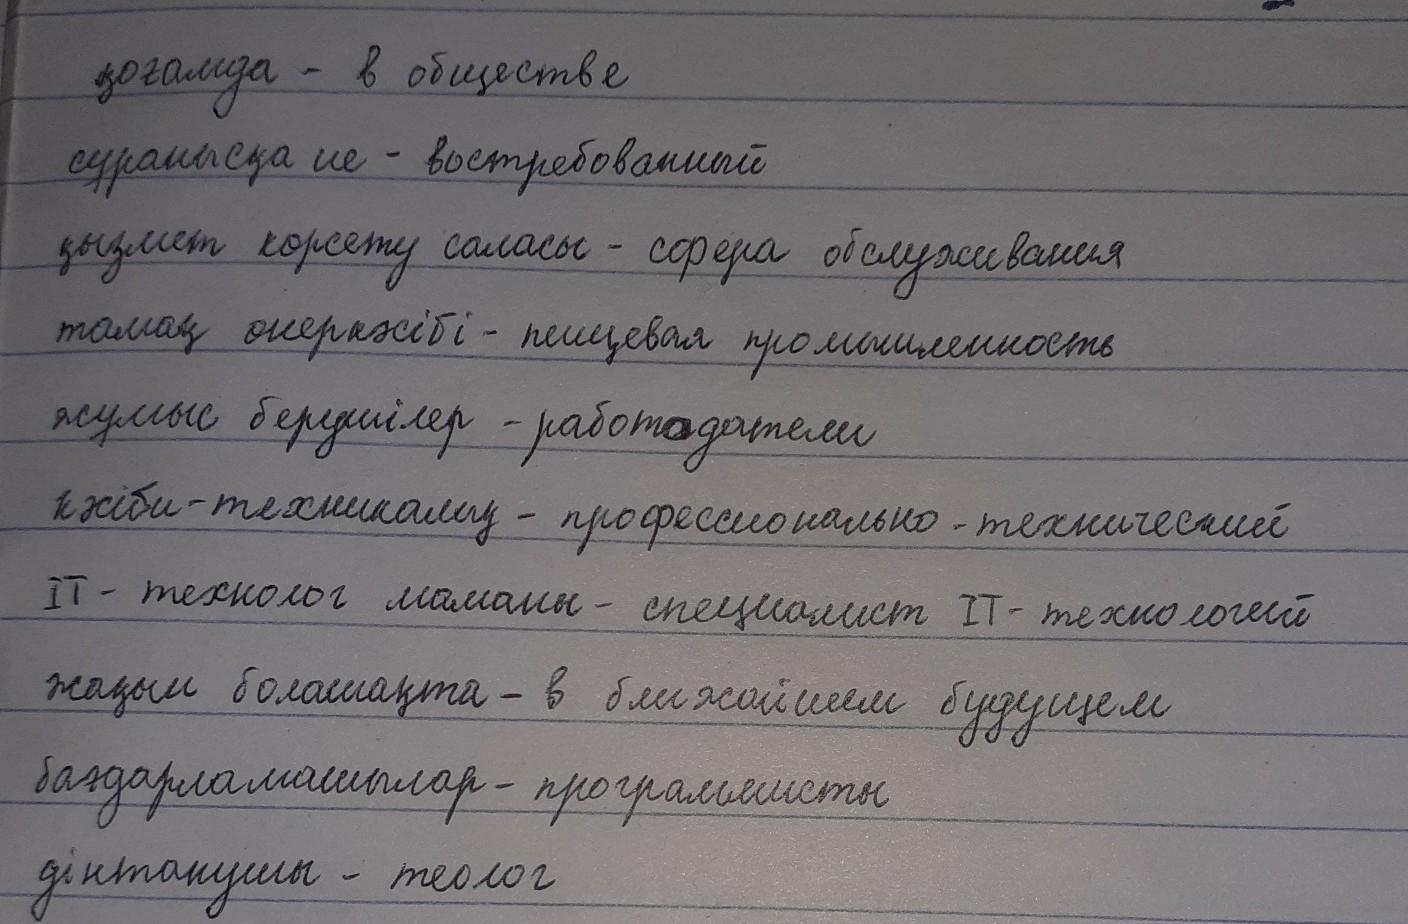 қоғамда - в обществе
сұранысқа ие - востребованный
қызмет корсету саласы - сфера обслуживания
тамақ онеркәсібі - пищевая промышленность
жұмыс берушілер - работодатели
кәсіби-техникалық - профессионально-технический
IT - технолог маманы - специалист IT - технологий
жақын болашақта - в ближайшем будущем
бағдарламашылар - программисты
дінтанушы - теолог